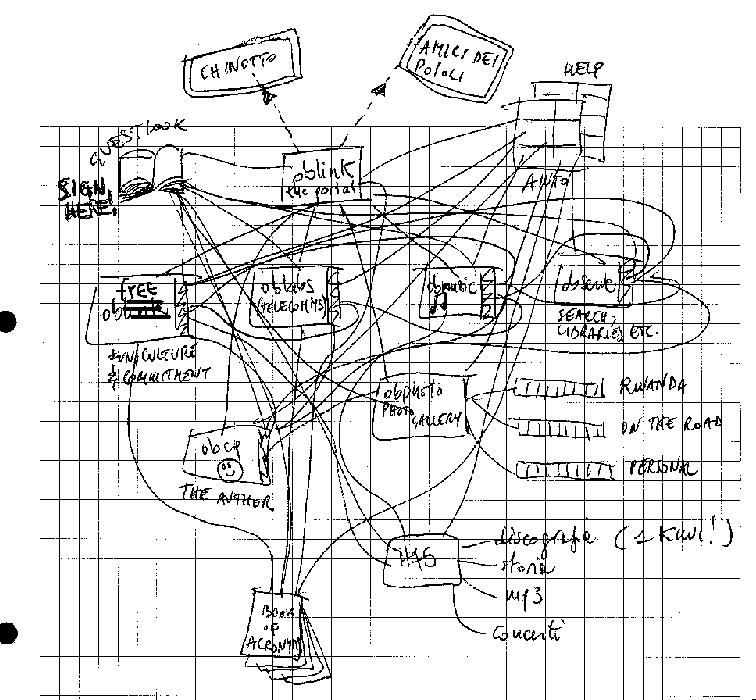 CHINOTTO
AMICI DEI
POLOLI
HELP
GUESTBOOK
SIGN
HERE!
oblink
the portal
AIUTO
FREE
(TELECOMMS)
obmusic
SEARCH,
LIBRARIES, ETC.
FUN, CULTURE
& COMMITMENT
obphoto
PHOTO
GALLERY
RWANDA
ON THE ROAD
PERSONAL
THE AUTHOR
discografia
storia
mp3
concerti
BOOK
OF
ACRONYMS